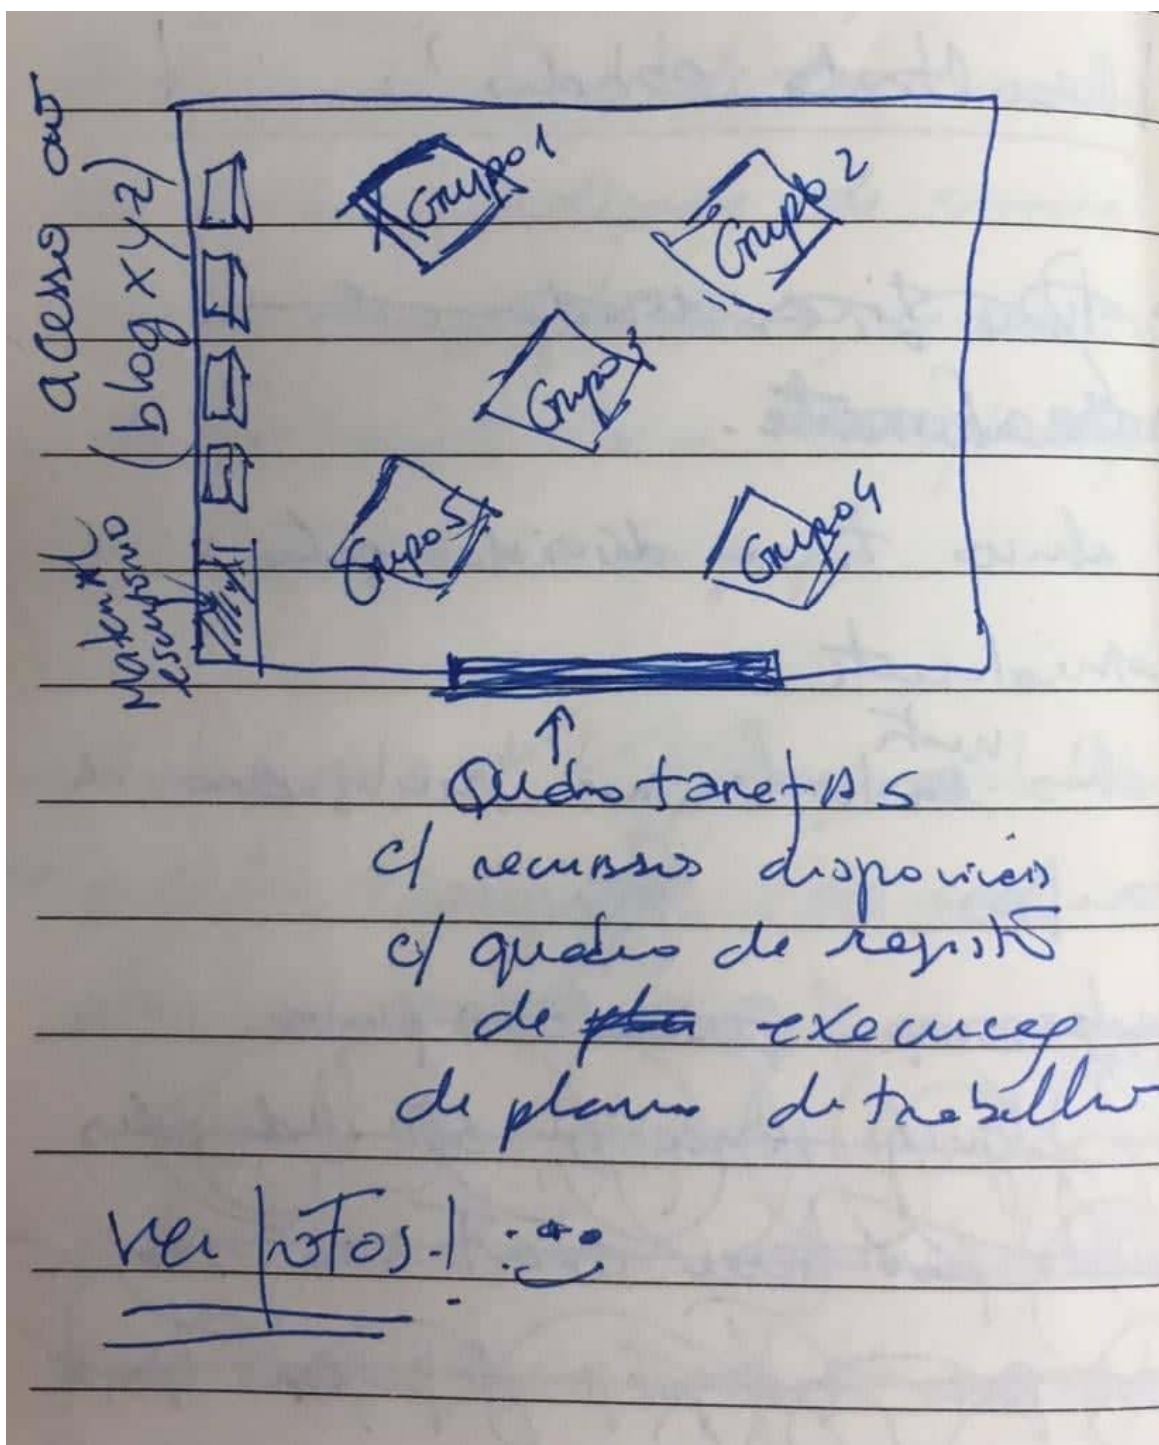 acesso ao
(blog xyz)
Material
Grupo 1
Grupo 2
Grupo 3
Grupo 5
Grupo 4
Quadro tarefAS
c/ recursos disponiveis
c/ quadro de registo
de execução
de plano de trabalho
ver fotos!